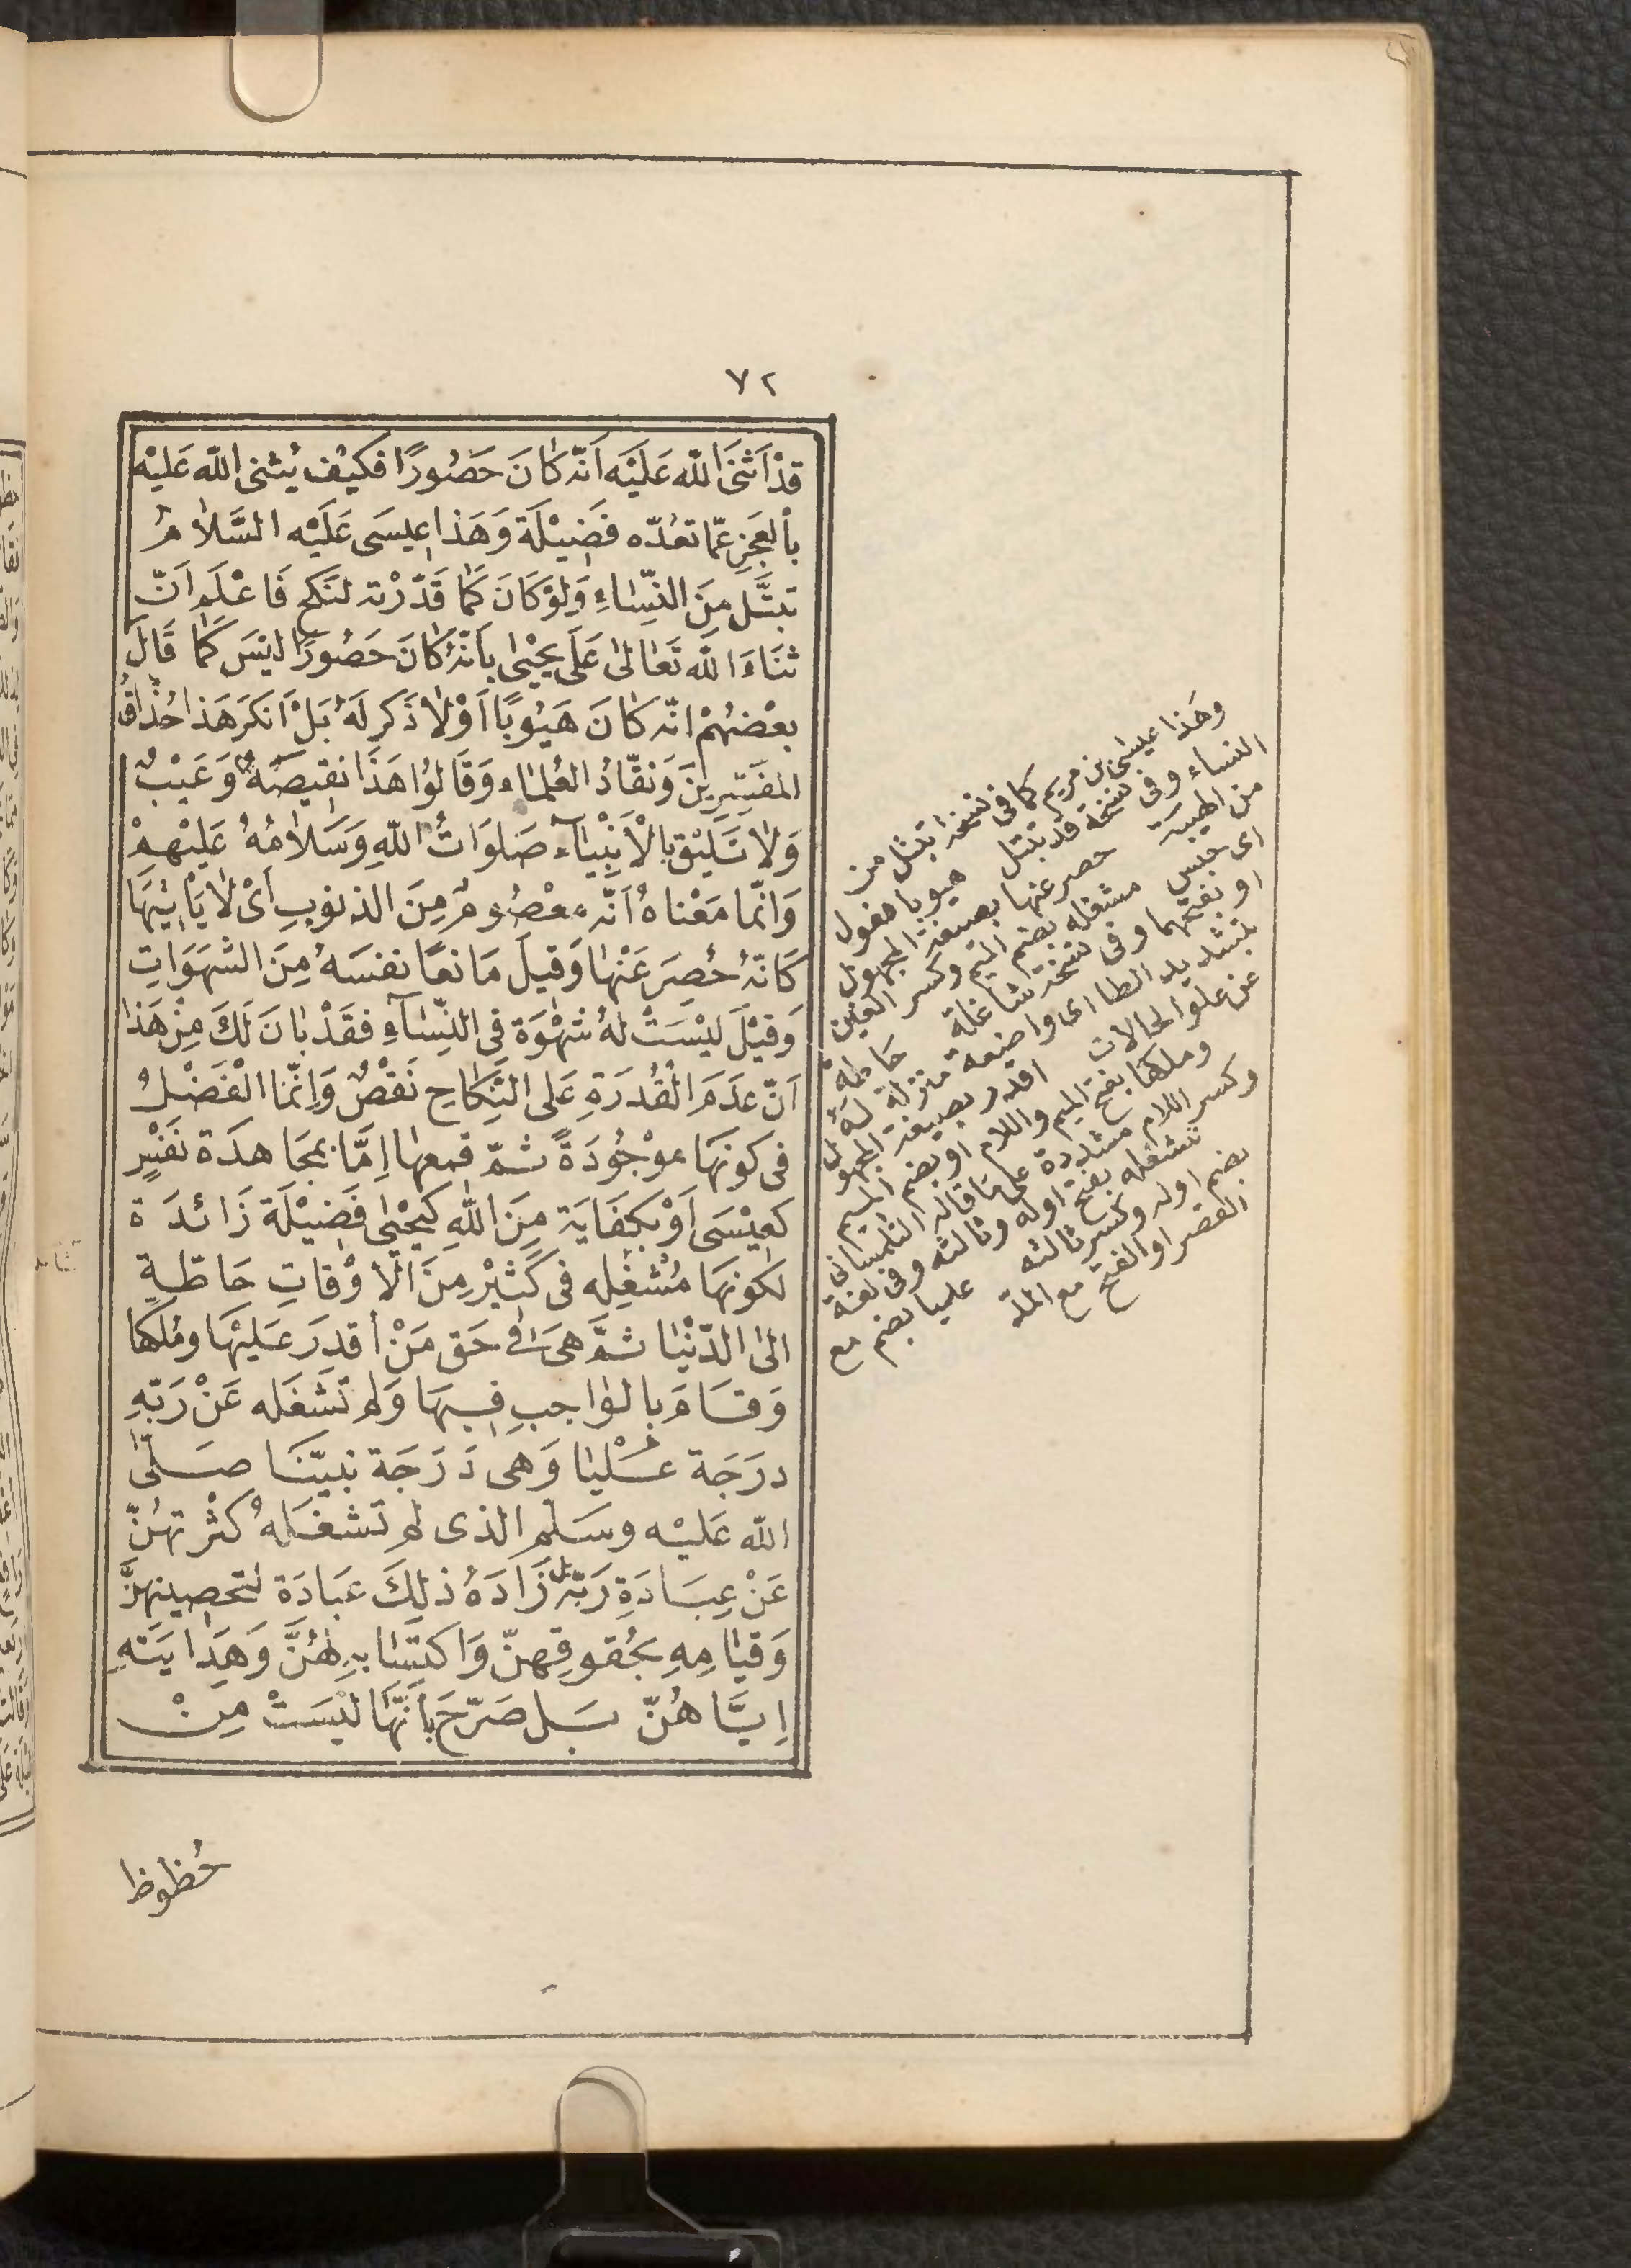 ٧٢
قَدْ اَثْنَى اللّٰه عَلَيْه اَنّه كَانَ حَصُورًا فكَيْف يُثنى اللّٰه عَليْه
بألعَجزِ عمّا تعُدّه فَضِيْلَة وَهَذا عِيسَى عَلَيْه السَّلَامُ
تبتَّل مِنَ النِّسَاءِ وَلوْ كَانَ كَمَا قَدّرْته لنَكح فَاعْلَم اَنّ
ثنَاءَ اللّٰه تَعَالىٰ عَلَى يَحْيىٰ بِاَنّهُ كَانَ حَصُورًا ليْسَ كَمَا قَالَ
بعْضهُمْ انّه كَانَ هَيُوبًا اَوْ لَا ذَكَر لَهُ بَلْ اَنكرَ هَذا حُذّاقُ
المفَسِّرِينَ وَنقّادُ العُلمَاء وَقَالوُا هَذَا نقيصَةٌ وَعَيْبٌ
وَلَا تَليْق بِالْاَنْبِيَآء صَلوَاتُ اللّٰهِ وَسَلَامُهُ عَليْهِمْ
وَانّما مَعْناهُ اَنّه مَعْصُومٌ مِنَ الذنوبِ اَىْ لَا يَأْتِيْهَا
كَانّهُ حُصِرَ عَنْهَا وَقيلَ مَانعًا نفسَهُ مِنَ الشهَوَاتِ
وَقيْلَ ليْسَتْ لهُ شهْوَة فى النِّسَآءِ فقَدْ بَانَ لَكَ مِنْ هَذا
اَنّ عَدَمَ الْقُدرَةِ عَلى النِّكَاحِ نَقْصٌ وَاِنّمَا الْفَضْلُ
فى كونهَا مَوْجُودَةً ثمّ قمعهَا اِمَّا بمجَاهدَة نَفْسٍ
كعِيْسَى اَوْ بكِفَايَة مِنَ اللّٰهِ كيَحْيٰى فَضِيْلَة زَائدَة
لكونهَا مُشْغِله فى كَثيْر مِنَ الْاَوْقاتِ حَاطّةٍ
الىٰ الدّنْيَا ثمَّ هىَ فى حَق مَنْ أقدِرَ عَليْهَا ومُلكهَا
وَقامَ بالوَاجبِ فيهَا وَلم تَشغَله عَنْ رَبّهِ
درَجَة عُليَا وَهى دَرَجَة نبيّنَا صَلّى
اللّٰه عَليْه وسَلم الذى لم تَشغَلهُ كثْرتهُنّ
عَنْ عِبَادَةِ رَبّه بل زَادَهُ ذلِكَ عبَادَة لتحصِينهنَّ
وَقيَامِهِ بحُقوقِهنّ وَاكتِسَابهِ لهُنَّ وَهِدَايَتهِ
اِيَّاهُنّ بَل صَرّحَ بأنّهَا ليْسَتْ مِنْ
حُظوظ
وهَذا عيسى بن مريم كما فى نسخه تبتل من
النساء وفى نسخة قد تبتل هيوبا مفعول
من الهيبة حصر عنها بصيغة المجهول
اى حبس مشغله بضم الميم وكسر الغين
او بفتحهما وفى نسخة شاغلة حاطة
بتشديد الطا اى واضعة منزلة له
عن علو الحالات اقدر بصيغة المجهول
وملكها بفتح الميم واللام او بضم الميم
وكسر اللام مشددة على ما قاله التلمسانى
تشغله بفتح اوله وثالثه وفى لغة
بضم اوله وكسر ثالثه عليا بضم مع
القصر او الفتح مع المدّ